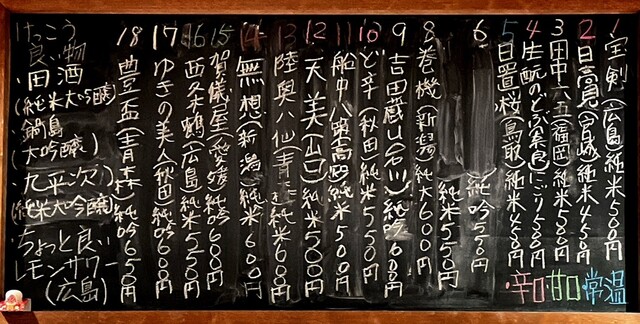 1 宝剣(広島)純米500円
2 日高見(宮城)純米450円
3 田中六五(福岡)純米500円
4 生酛のどぶ(奈良)にごり450円
5 日置桜(鳥取)純米550円
6 純吟550円
8 巻機(新潟)純大600円
9 吉田蔵u(石川)純吟600円
10 ど辛(秋田)純米550円
11 船中八策(高知)純米500円
12 天美(山口)純米550円
13 陸奥八仙(青森)純米600円
14 無想(新潟)純米600円
15 賀儀屋(愛媛)純吟600円
16 西条鶴(広島)純米550円
17 ゆきの美人(秋田)純吟600円
18 豊盃(青森)純吟650円
けっこう
良い物
・田酒
(純米大吟醸)
・鍋島
(大吟醸)
・九平次
(純米大吟醸)
・ちょっと良い
レモンサワー
(広島)
・辛口・甘口・常温